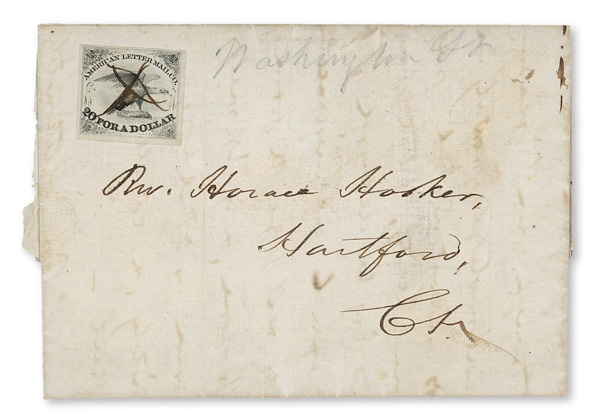 AMERICAN LETTER MAIL CO.
20 FOR A DOLLAR
Washington St
Rev. Horace Hooker,
Hartford,
Ct.